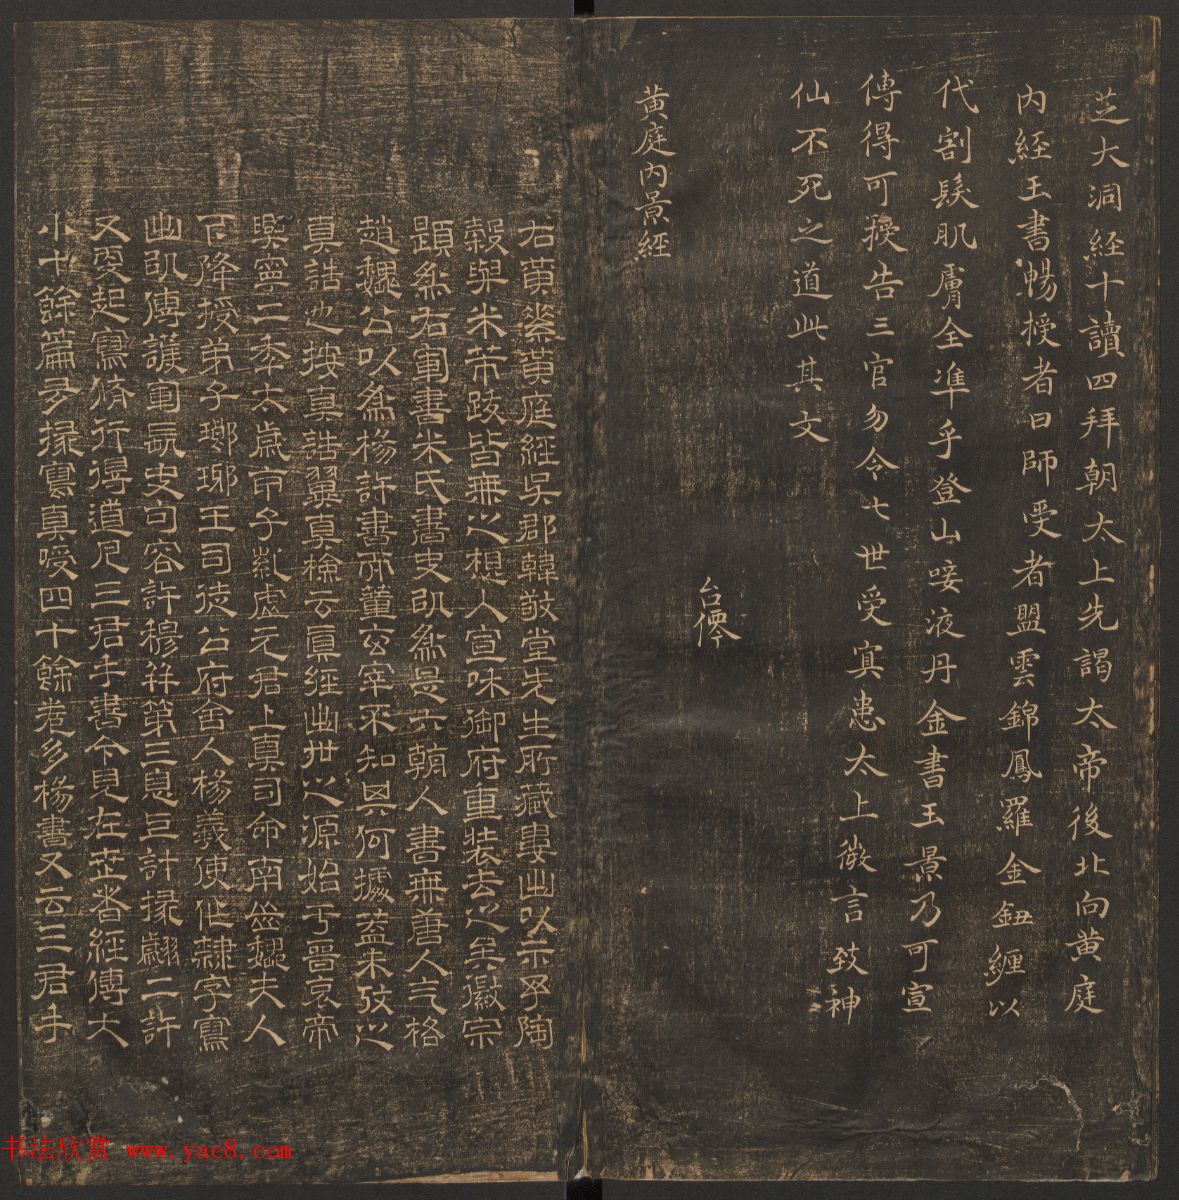 芝大洞經十讀四拜朝太上先謁太帝後北向黄庭
内經玉書暢授者曰師受者盟雲錦鳳羅金鈕纏以
代割髮肌膚全準乎登山唼液丹金書玉景乃可宣
傳得可授告三官勿令七世受寘患太上微言致神
仙不死之道此其文
台僊
黄庭内景經
右黄素黄庭經吳郡韓敬堂先生所藏婁出以示予陶
穀與米芾跋皆無之想人宣咊御府重裝去之矣徽宗
題爲右軍書米氏書史即爲是六朝人書無唐人气格
趙魏公以爲楊許書而董玄宰不知其何據蓋未攷之
真誥也按真誥翼真檢云真經出世之源始于晉哀帝
興寧二年太歲甲子紫虚元君上真司命南嶽魏夫人
下降授弟子瑯琊王司徒公府舍人楊羲使作隸字寫
出以傳護軍長史句容許穆并第三息上計掾翽二許
又更起寫脩行得道凡三君手書今見在世者經傳大
小十餘篇多掾寫真哾四十餘卷多楊書又云三君手
书法欣赏 www.yac8.com